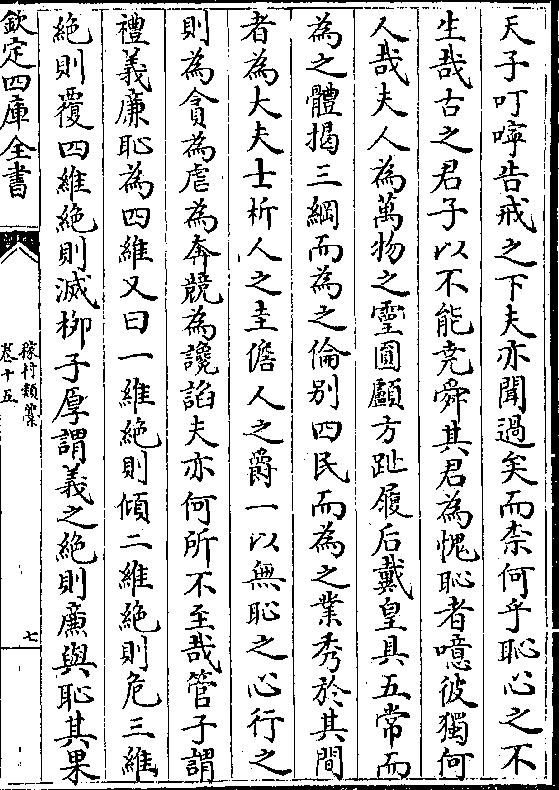 天子叮嚀告戒之下夫亦聞過矣而柰何乎恥心之不
生哉古之君子以不能堯舜其君為愧恥者噫彼獨何
人哉夫人為萬物之靈圓顱方趾履后戴皇具五常而
為之體揭三綱而為之倫别四民而為之業秀於其間
者為大夫士析人之圭儋人之爵一以無恥之心行之
則為貪為虐為奔競為讒諂夫亦何所不至哉管子謂
禮義廉恥為四維又曰一維絶則傾二維絶則危三維
絶則覆四維絶則滅栁子厚謂義之絶則廉與恥其果
欽定四庫全書
稼村類藁
卷十五
七